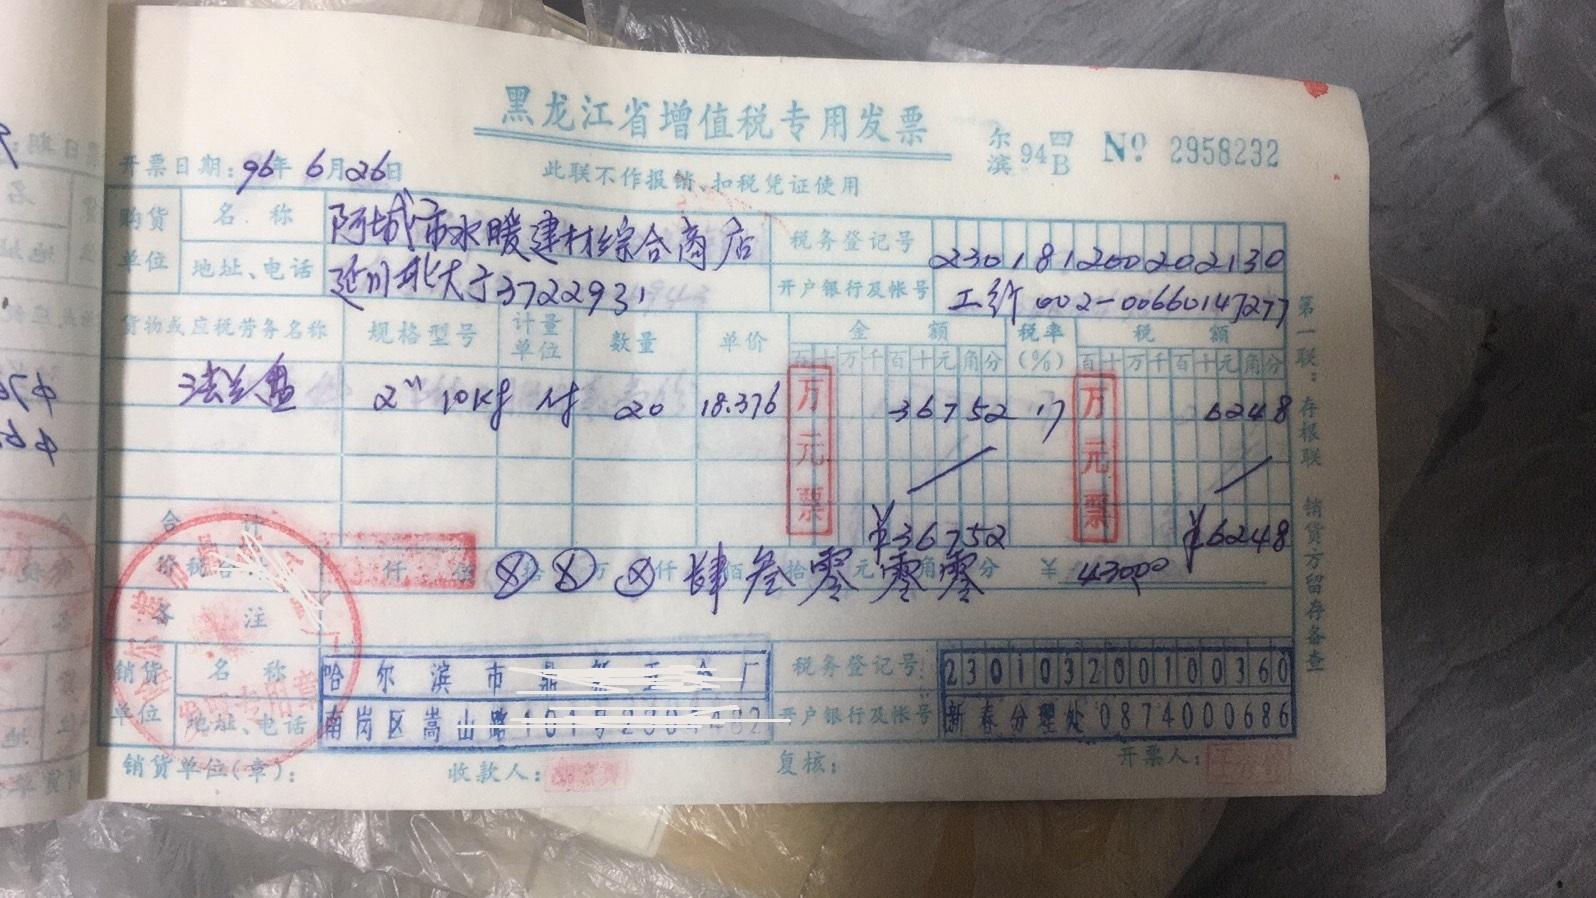 黑龙江省增值税专用发票
尔滨 94 四B № 2958232
开票日期：96年 6月26日 此联不作报销、扣税凭证使用
购货单位 名称 阿城市水暖建材综合商店 税务登记号 230181200202130
地址、电话 延川北大于3722931 开户银行及帐号 工行 002-00660147277
货物或应税劳务名称 规格型号 计量单位 数量 单价 金额 税率(%) 税额
百十万千百十元角分 百十万千百十元角分
法兰盘 2" 10kg 付 20 18.376 36752 17 6248
万元票 万元票
合计 ¥36752 ¥6248
价税合计 仟 佰 ⊗拾 ⊗万 ⊗仟 肆佰 叁拾 零元 零角 零分 ¥ 43000
备注
销货单位 名称 哈尔滨市 厂 税务登记号： 230103200100360
地址、电话 南岗区嵩山路101号 开户银行及帐号 新春分理处0874000686
销货单位(章)： 收款人： 复核： 开票人：
第一联：存根联 销货方留存备查